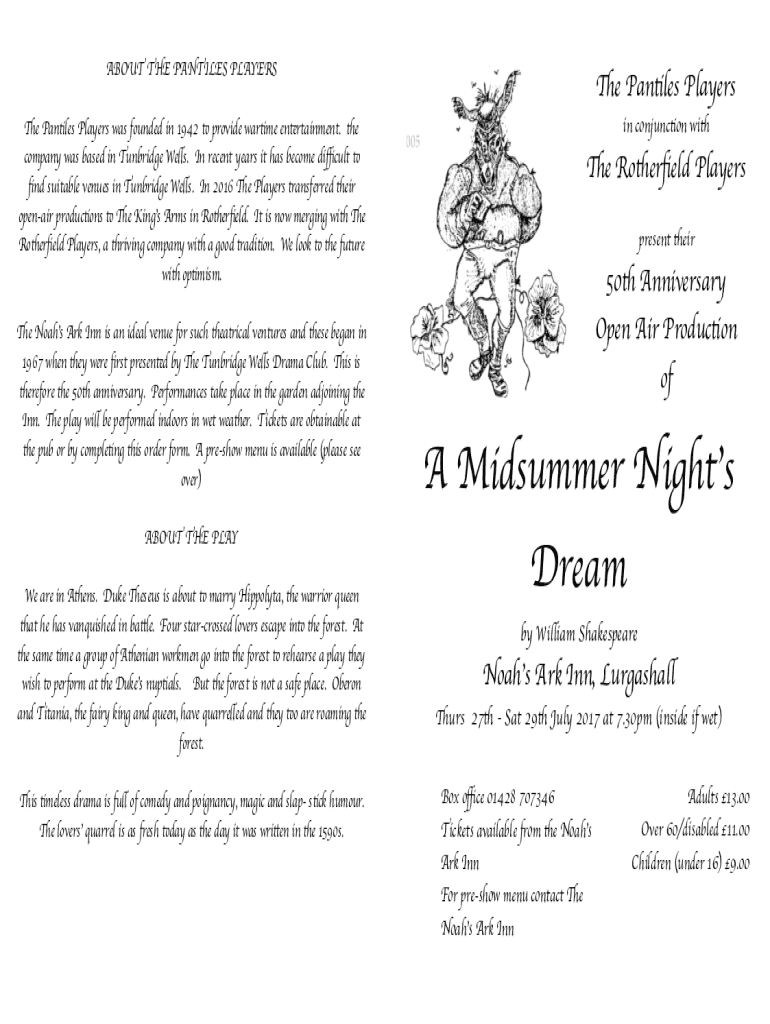 ABOUT THE PANTILES PLAYERS
The Pantiles Players was founded in 1942 to provide wartime entertainment. the
company was based in Tunbridge Wells. In recent years it has become difficult to
find suitable venues in Tunbridge Wells. In 2016 The Players transferred their
open-air productions to The King's Arms in Rotherfield. It is now merging with The
Rotherfield Players, a thriving company with a good tradition. We look to the future
with optimism.
The Noah's Ark Inn is an ideal venue for such theatrical ventures and these began in
1967 when they were first presented by The Tunbridge Wells Drama Club. This is
therefore the 50th anniversary. Performances take place in the garden adjoining the
Inn. The play will be performed indoors in wet weather. Tickets are obtainable at
the pub or by completing this order form. A pre-show menu is available (please see
over)
ABOUT THE PLAY
We are in Athens. Duke Theseus is about to marry Hippolyta, the warrior queen
that he has vanquished in battle. Four star-crossed lovers escape into the forest. At
the same time a group of Athenian workmen go into the forest to rehearse a play they
wish to perform at the Duke's nuptials. But the forest is not a safe place. Oberon
and Titania, the fairy king and queen, have quarrelled and they too are roaming the
forest.
This timeless drama is full of comedy and poignancy, magic and slap- stick humour.
The lovers' quarrel is as fresh today as the day it was written in the 1590s.
005
The Pantiles Players
in conjunction with
The Rotherfield Players
present their
50th Anniversary
Open Air Production
of
A Midsummer Night's
Dream
by William Shakespeare
Noah's Ark Inn, Lurgashall
Thurs 27th - Sat 29th July 2017 at 7.30pm (inside if wet)
Box office 01428 707346
Tickets available from the Noah's
Ark Inn
For pre-show menu contact The
Noah's Ark Inn
Adults £13.00
Over 60/disabled £11.00
Children (under 16) £9.00